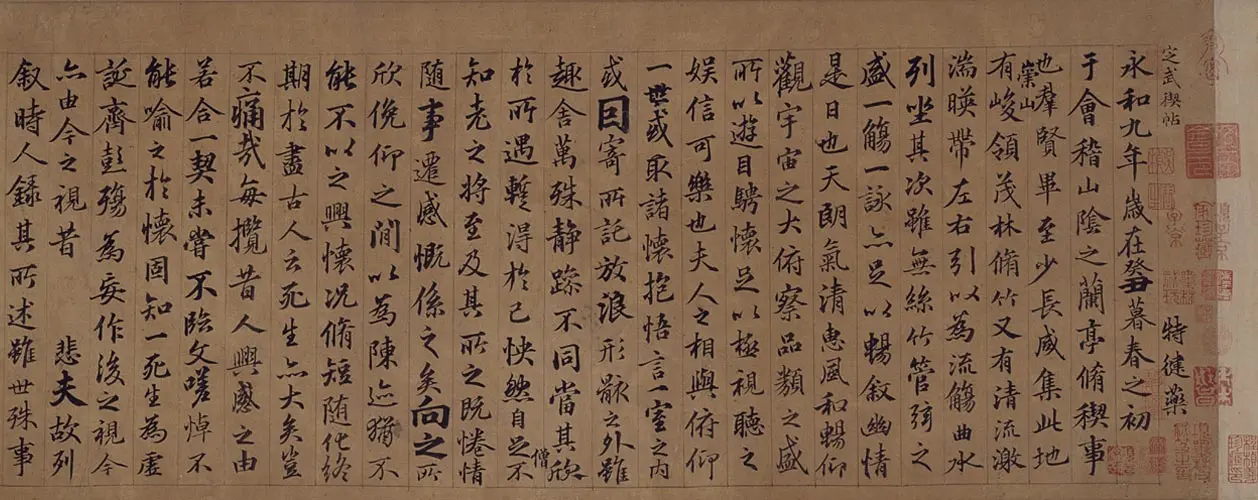 定武禊帖
特健藥
永和九年歲在癸丑暮春之初
于會稽山陰之蘭亭脩稧事
也羣賢畢至少長咸集此地
有崇山峻領茂林脩竹又有清流激
湍暎帶左右引以為流觴曲水
列坐其次雖無絲竹管弦之
盛一觴一詠亦足以暢叙幽情
是日也天朗氣清惠風和暢仰
觀宇宙之大俯察品類之盛
所以遊目騁懷足以極視聽之
娛信可樂也夫人之相與俯仰
一世或取諸懷抱悟言一室之內
或因寄所託放浪形骸之外雖
趣舍萬殊静躁不同當其欣
於所遇蹔得於己怏然自足不
僧
知老之將至及其所之既惓情
隨事遷感慨係之矣向之所
欣俛仰之閒以為陳迹猶不
能不以之興懷況脩短隨化終
期於盡古人云死生亦大矣豈
不痛哉每攬昔人興感之由
若合一契未嘗不臨文嗟悼不
能喻之於懷固知一死生為虛
誕齊彭殤為妄作後之視今
亦由今之視昔 悲夫故列
叙時人錄其所述雖世殊事